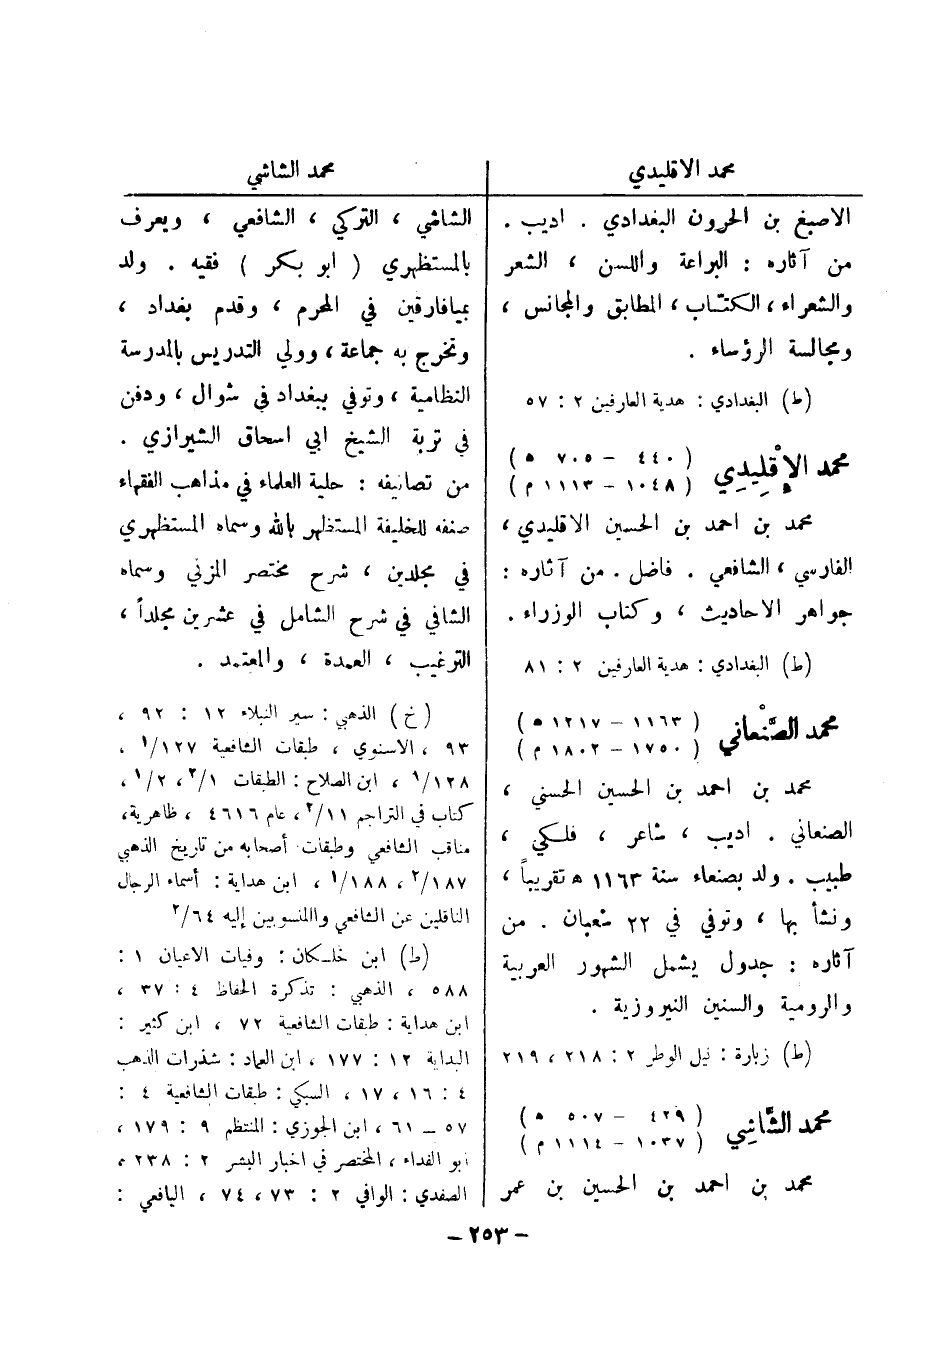 محمد الاقليدي
الاصبغ بن الحرون البغدادي . اديب .
من آثاره : البراعة واللسن ، الشعر
والشعراء ، الكتّاب ، المطابق والمجانس ،
ومجالسة الرؤساء .
(ط) البغدادي : هدية العارفين ٢ : ٥٧
محمد الإقليدي ( ٤٤٠ – ٥٠٧ ه )
( ١٠٤٨ – ١١١٣ م )
محمد بن احمد بن الحسين الاقليدي ،
الفارسي ، الشافعي . فاضل . من آثاره :
جواهر الاحاديث ، وكتاب الوزراء .
(ط) البغدادي : هدية العارفين ٢ : ٨١
محمد الصّنْعاني ( ١١٦٣ – ١٢١٧ ه )
( ١٧٥٠ – ١٨٠٢ م )
محمد بن احمد بن الحسين الحسني ،
الصنعاني . اديب ، شاعر ، فلكي ،
طبيب . ولد بصنعاء سنة ١١٦٣ ه تقريباً ،
ونشأ بها ، وتوفي في ٢٢ شعبان . من
آثاره : جدول يشمل الشهور العربية
والرومية والسنين النيروزية .
(ط) زبارة : نيل الوطر ٢ : ٢١٨ ، ٢١٩
محمد الشّاشي ( ٤٢٩ – ٥٠٧ ه )
( ١٠٣٧ – ١١١٤ م )
محمد بن احمد بن الحسين بن عمر
محمد الشاشي
الشاشي ، التركي ، الشافعي ، ويعرف
بالمستظهري ( ابو بكر ) فقيه . ولد
بميافارقين في المحرم ، وقدم بغداد ،
وتخرج به جماعة ، وولي التدريس بالمدرسة
النظامية ، وتوفي ببغداد في شوال ، ودفن
في تربة الشيخ ابي اسحاق الشيرازي .
من تصانيفه : حلية العلماء في مذاهب الفقهاء
صنفه للخليفة المستظهر بالله وسماه المستظهري
في مجلدين ، شرح مختصر المزني وسماه
الشافي في شرح الشامل في عشرين مجلداً ،
الترغيب ، العمدة ، والمعتمد .
(خ) الذهبي : سير النبلاء ١٢ : ٩٢ ،
٩٣ ، الاسنوي ، طبقات الشافعية ١٢٧/١ ،
١٢٨/١ ، ابن الصلاح : الطبقات ١/٢ ، ٢/١ ،
كتاب في التراجم ١١/٢ ، عام ٤٦١٦ ، ظاهرية ،
مناقب الشافعي وطبقات أصحابه من تاريخ الذهبي
١٨٧/٢ ، ١٨٨/١ ، ابن هداية : أسماء الرجال
الناقلين عن الشافعي والمنسوبين إليه ٦٤/٢
(ط) ابن خلـكان : وفيات الاعيان ١ :
٥٨٨ ، الذهبي : تذكرة الحفاظ ٤ : ٣٧ ،
ابن هداية : طبقات الشافعية ٧٢ ، ابن كثير :
البداية ١٢ : ١٧٧ ، ابن العماد : شذرات الذهب
٤ : ١٦ ، ١٧ ، السبكي : طبقات الشافعية ٤ :
٥٧ – ٦١ ، ابن الجوزي : المنتظم ٩ : ١٧٩ ،
ابو الفداء ، المختصر في اخبار البشر ٢ : ٢٣٨ ،
الصفدي : الوافي ٢ : ٧٣ ، ٧٤ ، اليافعي :
– ٢٥٣ –